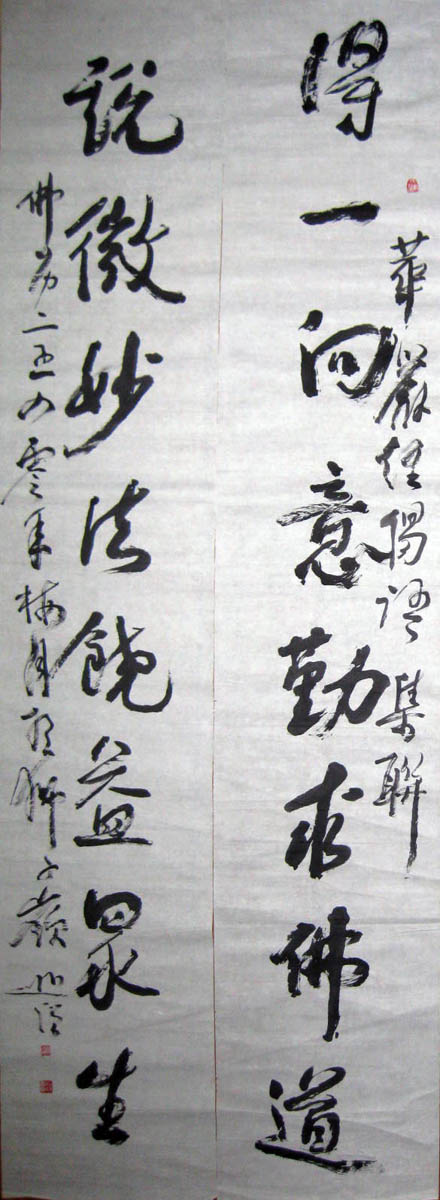 華嚴經偈語集聯
得一向意勤求佛道
說微妙法饒益眾生
佛歷二五四零年梅月